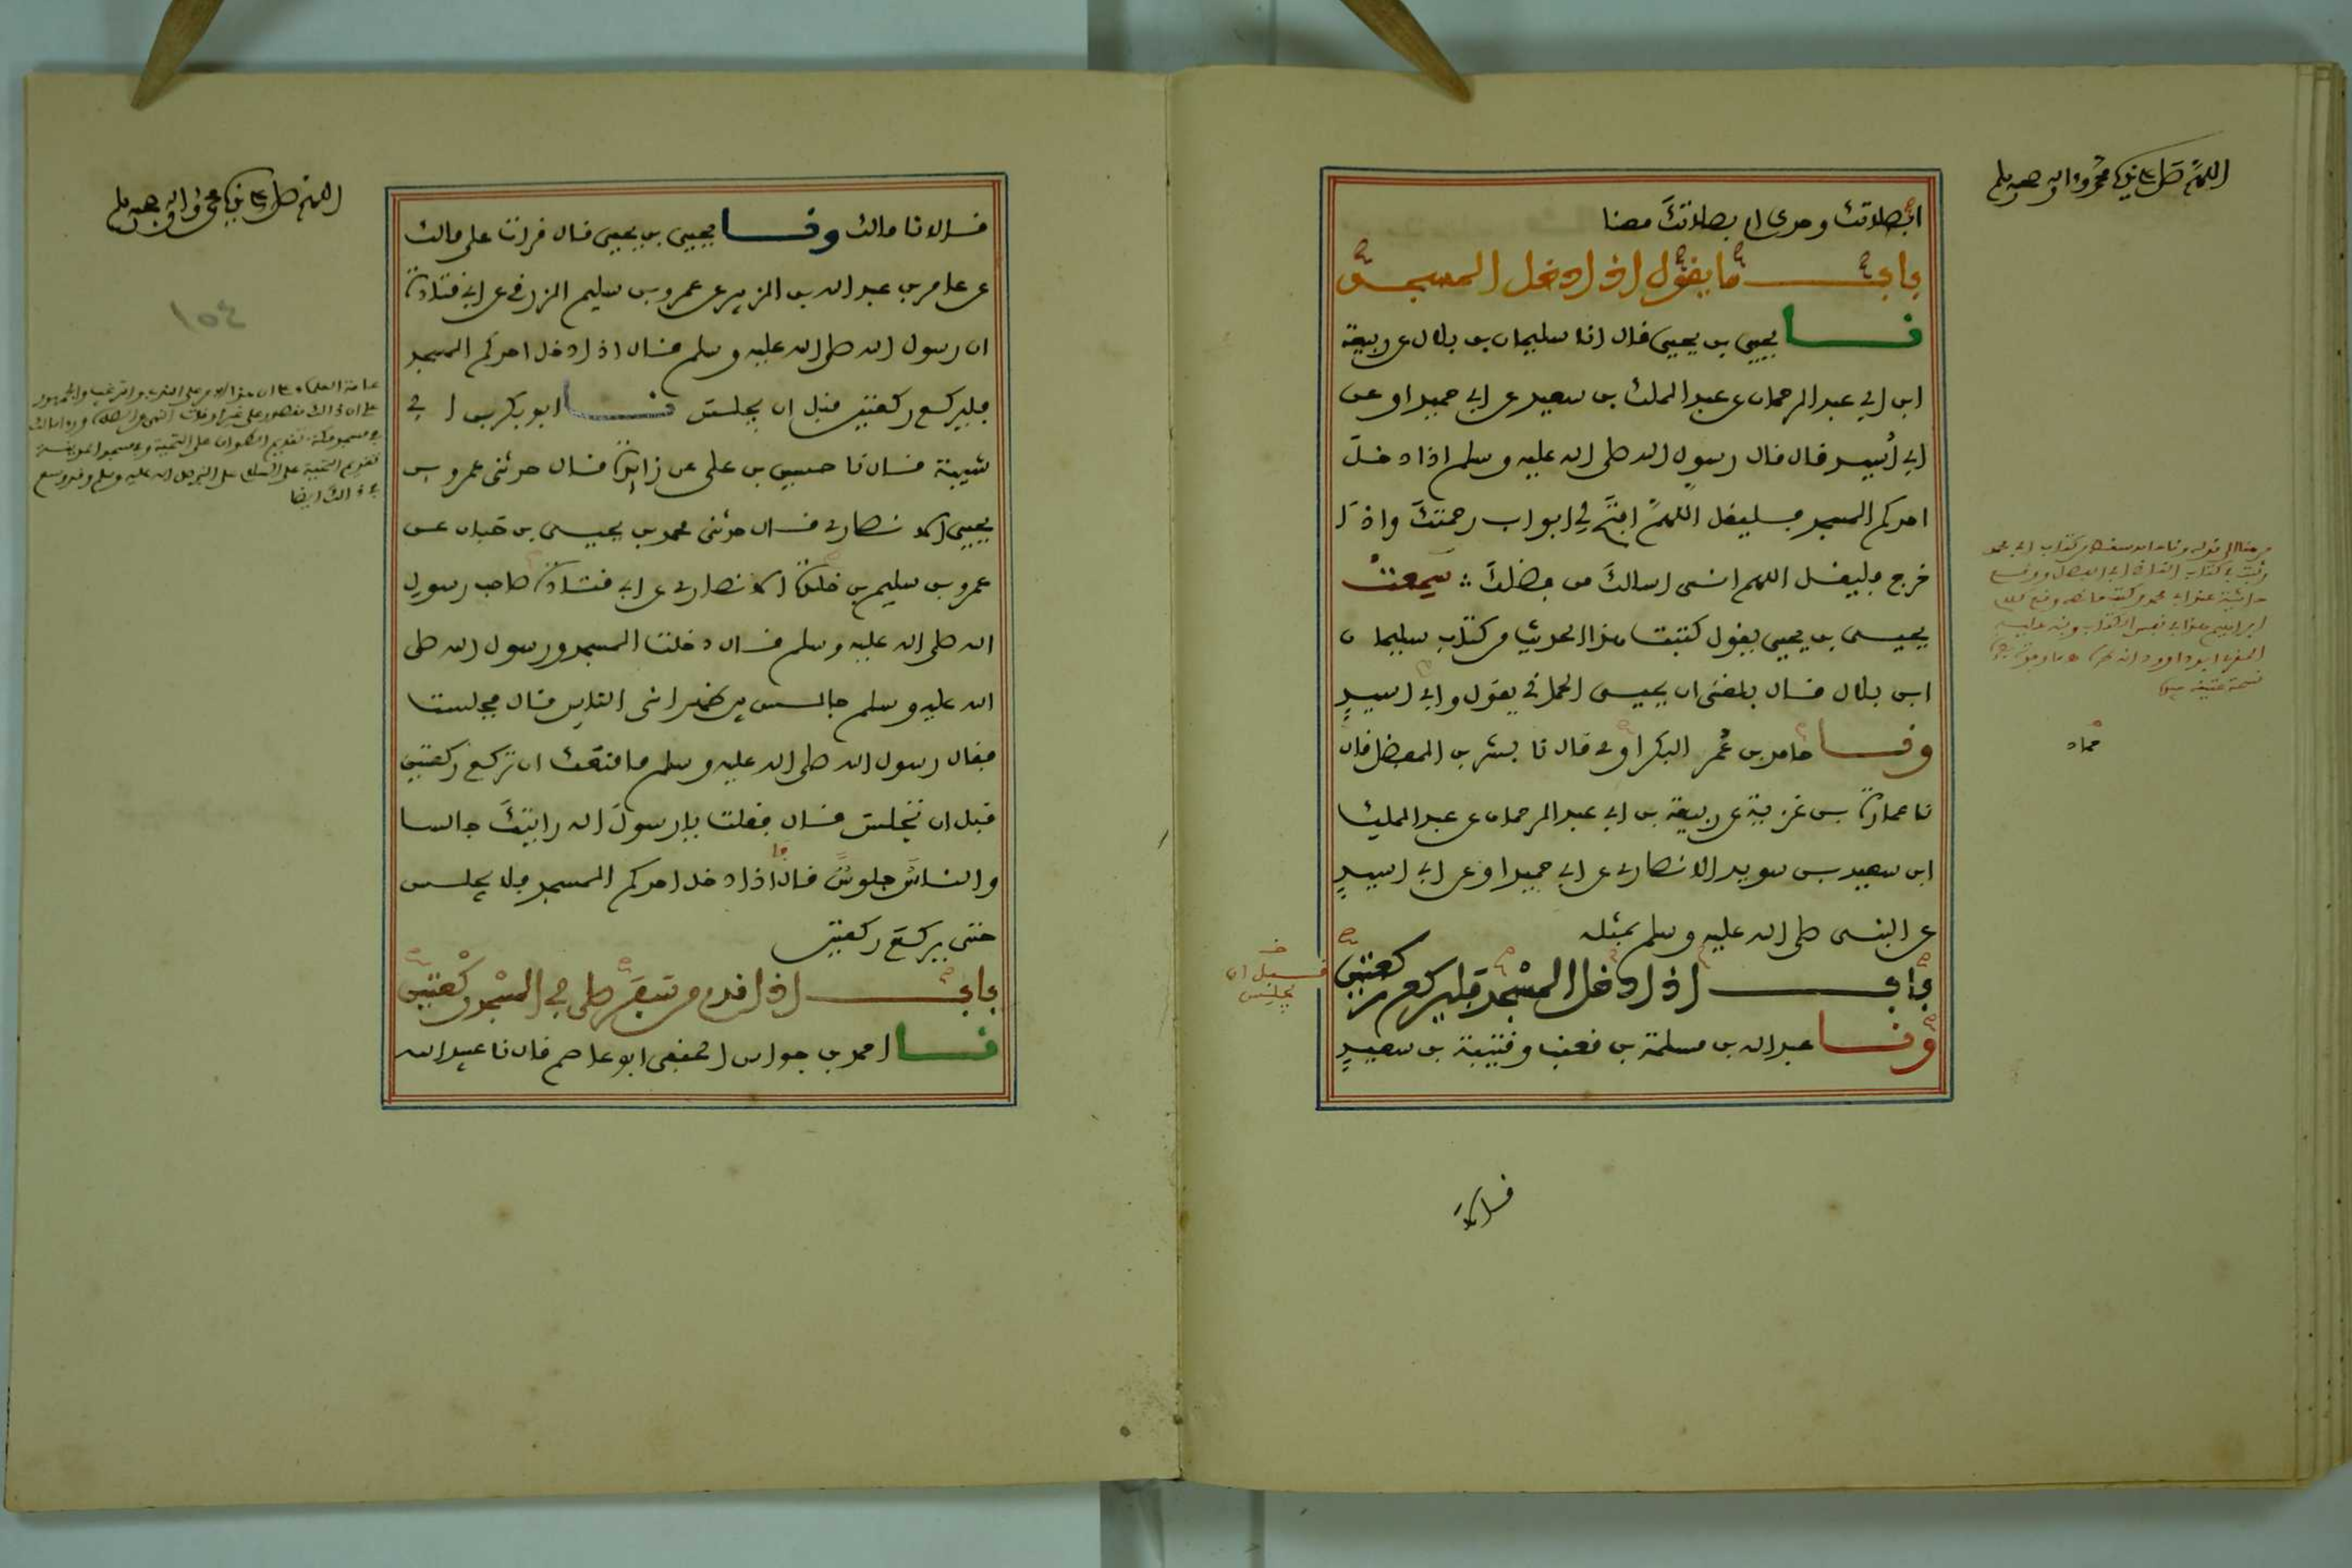 اللهم صل على سيدنا محمد وءاله وصحبه وسلم
ابصلاتك وحدك ام بصلاتك معنا
باب ما يقول اذا دخل المسجد
نا يحيى بن يحيى قال انا سليمان بن بلال عن ربيعة
ابن ابي عبد الرحمان عن عبد الملك بن سعيد عن ابي حميد او عن
ابي أسيد قال قال رسول الله صلى الله عليه وسلم اذا دخل
احدكم المسجد فليقل اللهم افتح لي ابواب رحمتك واذا
خرج فليقل اللهم انى اسالك من فضلك سمعت
يحيى بن يحيى يقول كتبت هذا الحديث من كتاب سليمان
ابن بلال قال بلغنى ان يحيى الحماني يقول وابي اسيد
ونا حامد بن عمر البكراوي قال نا بشر بن المفضل قال
نا عمارة بن غزية عن ربيعة بن ابي عبد الرحمان عن عبد الملك
ابن سعيد بن سويد الانصاري عن ابي حميد او عن ابي اسيد
عن النبى صلى الله عليه وسلم بمثله
باب اذا دخل المسجد فليركع ركعتين
قبل ان
يجلس
ونا عبد الله بن مسلمة بن قعنب وقتيبة بن سعيد
قالا
حماد
اللهم صل على سيدنا محمد وءاله وصحبه وسلم
قالا نا مالك ونا يحيى بن يحيى قال قرات على مالك
عن عامر بن عبد الله بن الزبير عن عمرو بن سليم الزرقي عن ابي قتادة
ان رسول الله صلى الله عليه وسلم قال اذا دخل احدكم المسجد
فليركع ركعتين قبل ان يجلس نا ابو بكر بن ابي
شيبة قال نا حسين بن على عن زايدة قال حدثنى عمرو بن
يحيى الانصاري قال حدثنى محمد بن يحيى بن حبان عن
عمرو بن سليم بن خلدة الانصاري عن ابي قتادة صاحب رسول
الله صلى الله عليه وسلم قال دخلت المسجد ورسول الله صلى
الله عليه وسلم جالس بين ظهرانى الناس قال فجلست
فقال رسول الله صلى الله عليه وسلم ما منعك ان تركع ركعتين
قبل ان تجلس قال فقلت يا رسول الله رايتك جالسا
والناس جلوس قال فاذا دخل احدكم المسجد فلا يجلس
حتى يركع ركعتين
باب اذا قدم من سفر صلى في المسجد ركعتين
نا احمد بن جواس الحنفى ابو عاصم قال نا عبيد الله